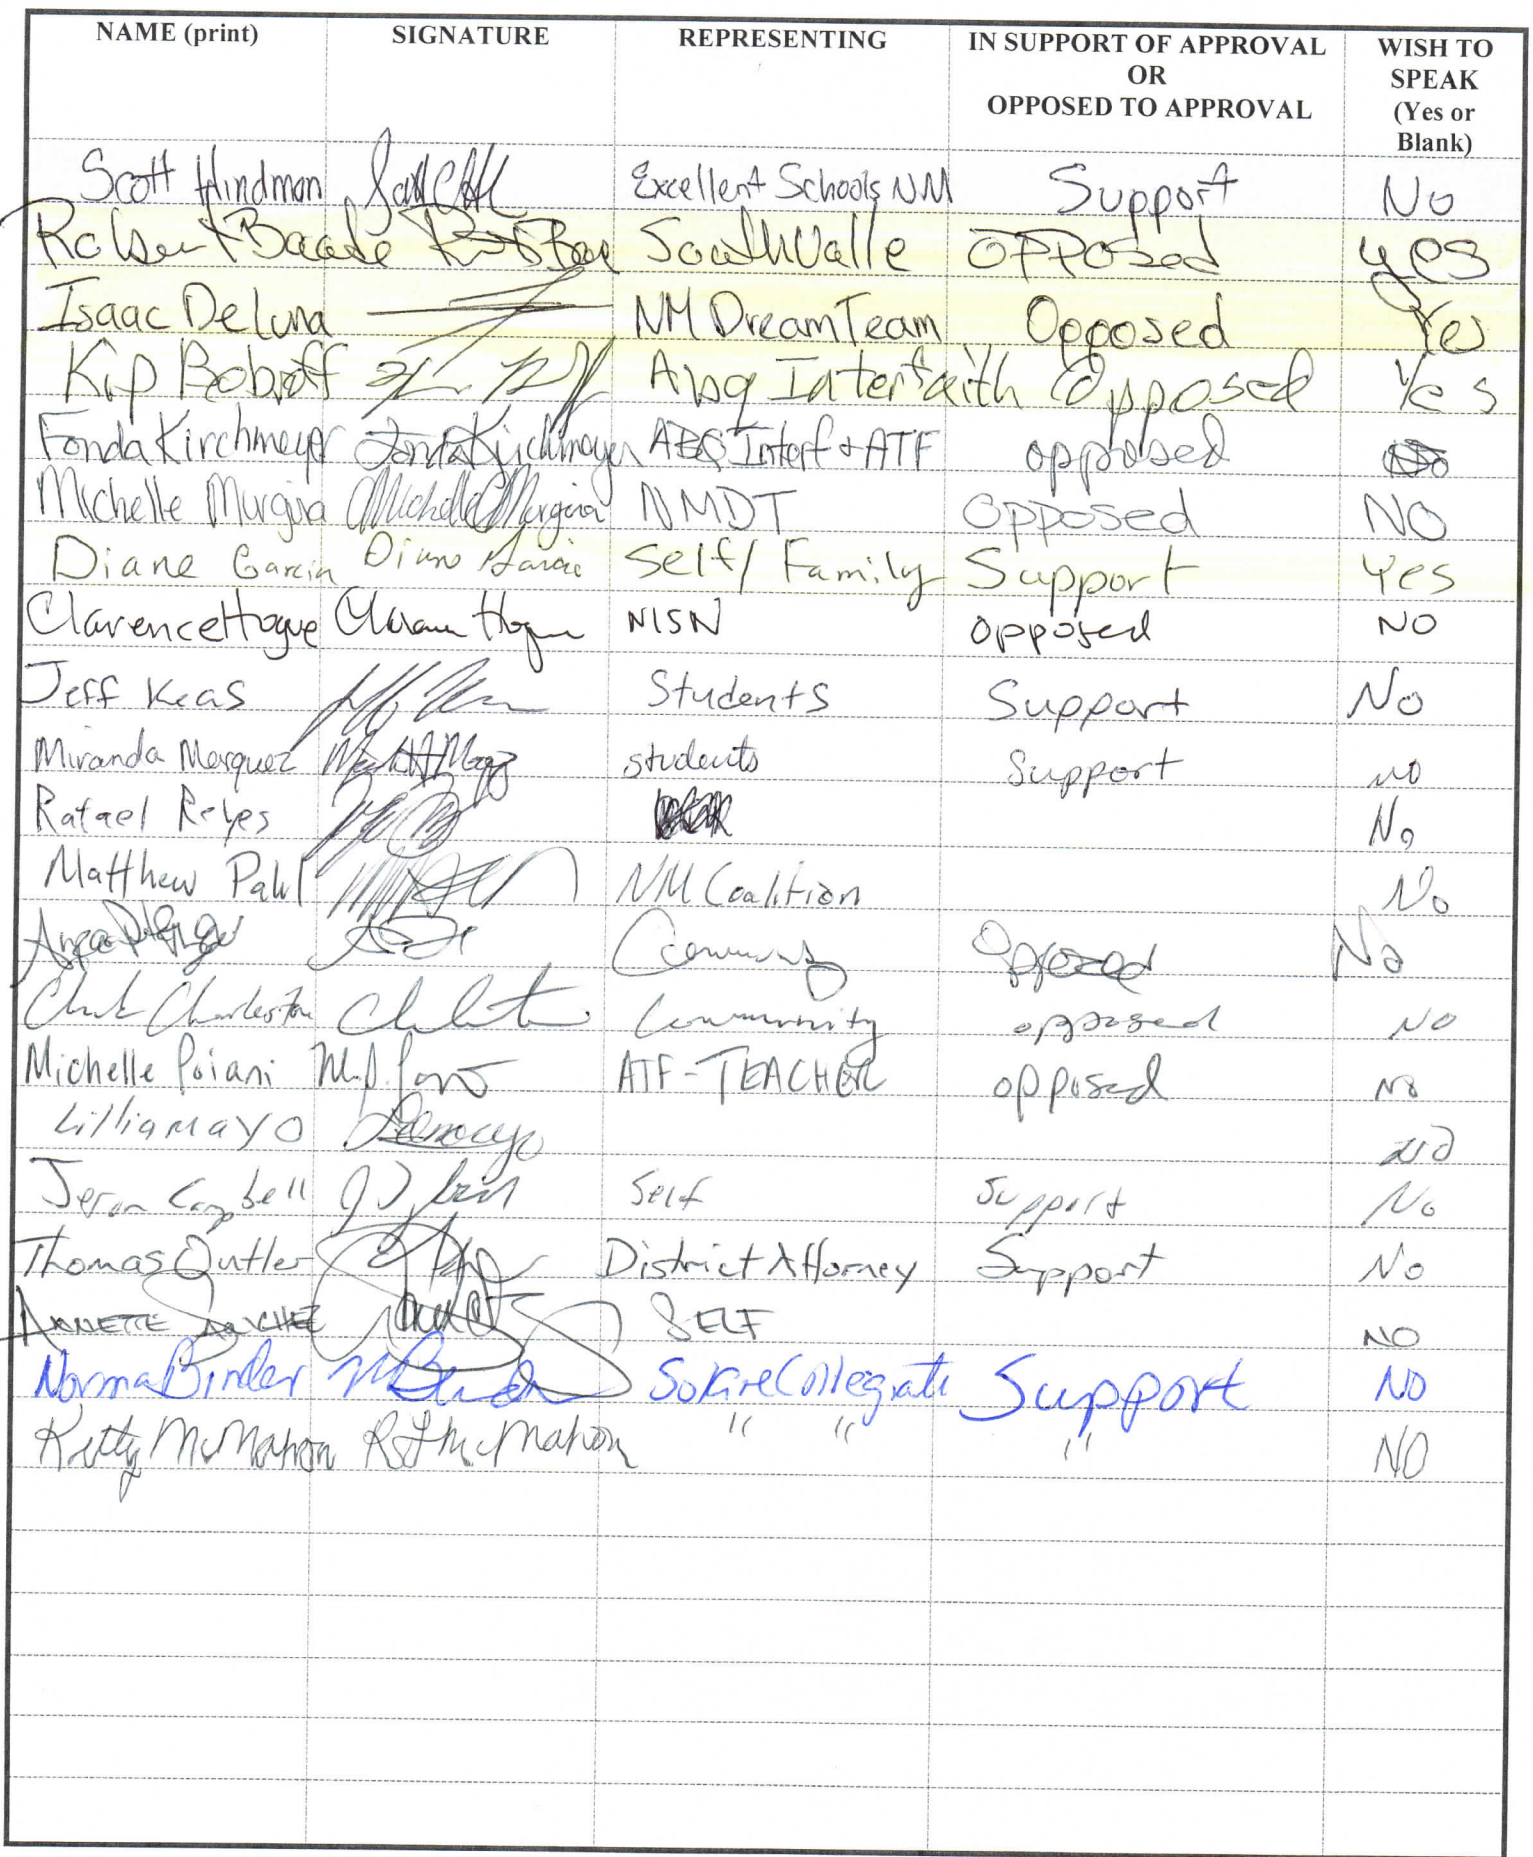 NAME (print) SIGNATURE REPRESENTING IN SUPPORT OF APPROVAL OR OPPOSED TO APPROVAL WISH TO SPEAK (Yes or Blank)
Scott Hindman Excellent Schools NM Support No
Robert Baade South Valle opposed yes
Isaac DeLuna NM Dream Team Opposed Yes
Kip Bobroff Abq Interfaith Opposed Yes
Fonda Kirchmeyer Fonda Kirchmeyer ABQ Interf + ATF opposed
Michelle Murguia Michelle Murguia NMDT Opposed NO
Diane Garcia Diane Garcia Self/Family Support Yes
Clarence Hogue Clarence Hogue NISN opposed NO
Jeff Keas Students Support No
Miranda Marquez students Support no
Rafael Reyes No
Matthew Pahl NM Coalition No
Community Opposed No
Charleston Community opposed NO
Michelle Poiani ATF-TEACHER opposed no
Lillia Mayo no
Jeron Campbell Self Support No
Thomas Outler District Attorney Support No
ANNETTE SANCHEZ SELF NO
Norma Binder Solare Collegiate Support NO
Kitty McMahon McMahon " " " NO